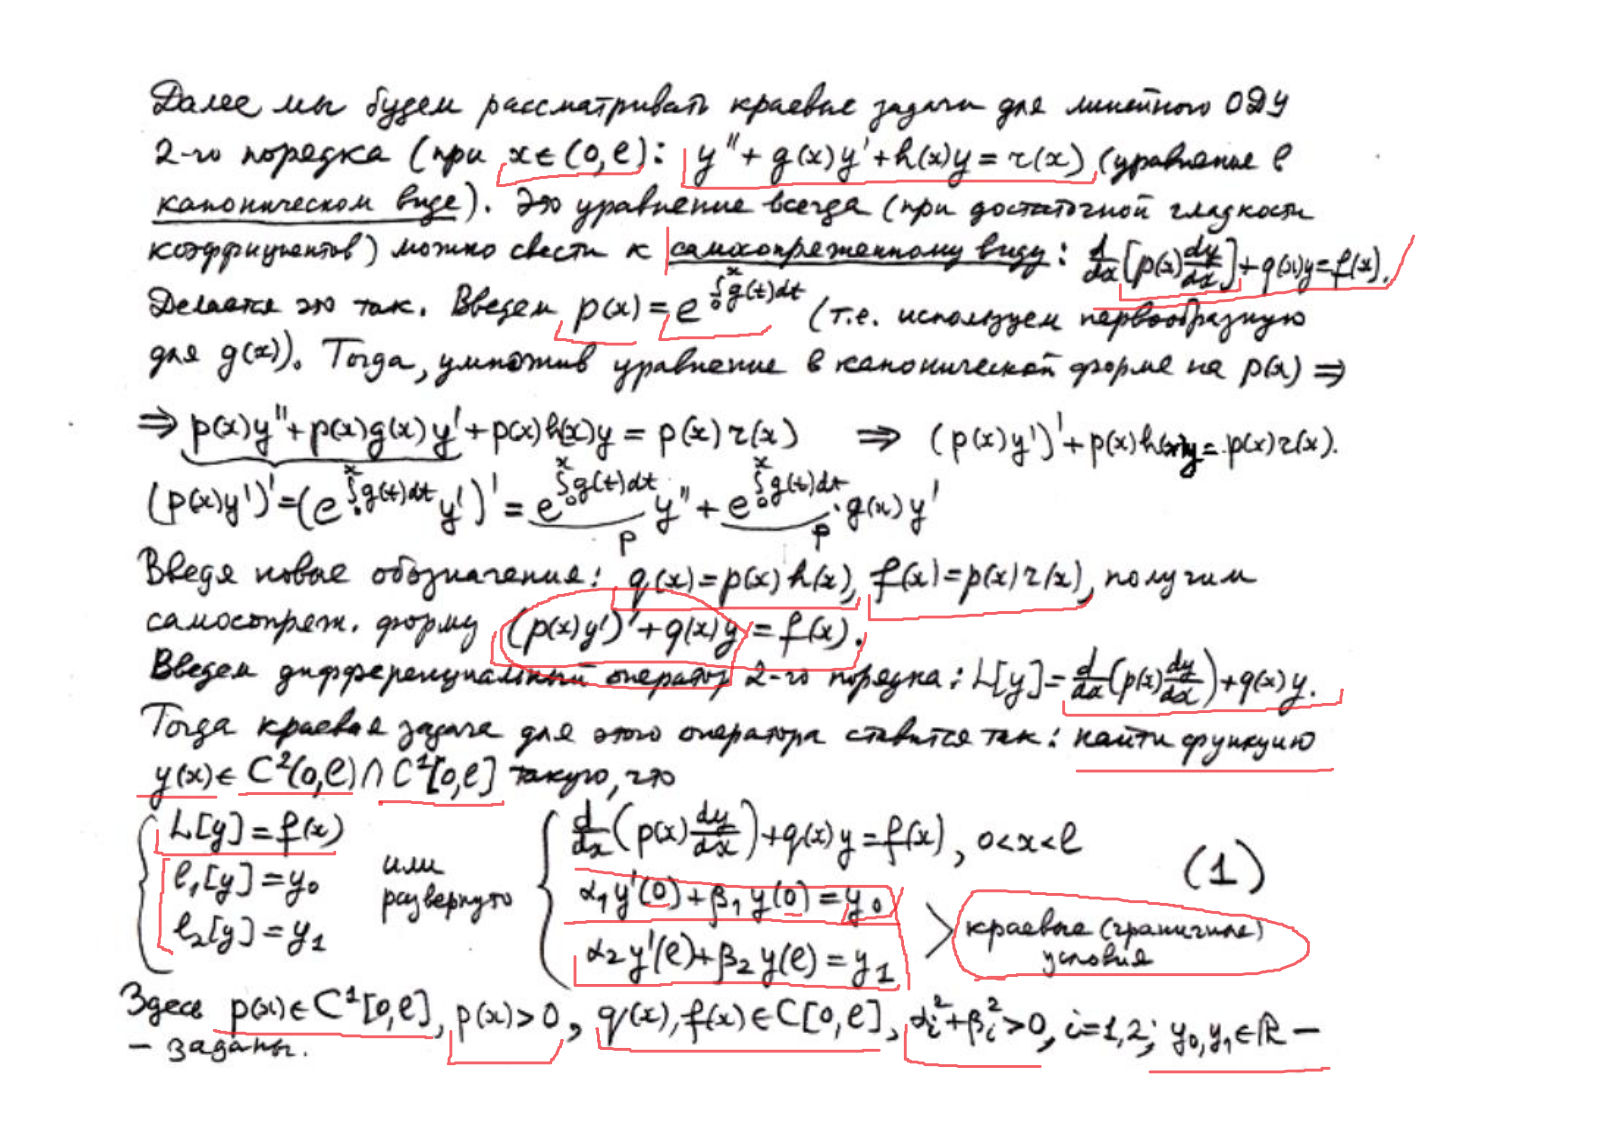 Далее мы будем рассматривать краевые задачи для линейного ОДУ
2-го порядка (при x∈(0,ℓ): y''+g(x)y'+h(x)y=r(x) (уравнение в
каноническом виде). Это уравнение всегда (при достаточной гладкости
коэффициентов) можно свести к самосопряженному виду: d/dx[p(x)dy/dx]+q(x)y=f(x).
Делается это так. Введем p(x)=e^{∫₀ˣg(t)dt} (т.е. используем первообразную
для g(x)). Тогда, умножив уравнение в канонической форме на p(x) ⇒
⇒ p(x)y''+p(x)g(x)y'+p(x)h(x)y=p(x)r(x) ⇒ (p(x)y')'+p(x)h(x)y=p(x)r(x).
(p(x)y')'=(e^{∫₀ˣg(t)dt}y')'=e^{∫₀ˣg(t)dt}y''+e^{∫₀ˣg(t)dt}·g(x)y'
p p
Введя новые обозначения: q(x)=p(x)h(x), f(x)=p(x)r(x), получим
самосопряж. форму (p(x)y')'+q(x)y=f(x).
Введем дифференциальный оператор 2-го порядка: L[y]=d/dx(p(x)dy/dx)+q(x)y.
Тогда краевая задача для этого оператора ставится так: найти функцию
y(x)∈C²(0,ℓ)∩C¹[0,ℓ] такую, что
{ L[y]=f(x)
ℓ₁[y]=y₀
ℓ₂[y]=y₁
или
развернуто
{ d/dx(p(x)dy/dx)+q(x)y=f(x), 0<x<ℓ
α₁y'(0)+β₁y(0)=y₀
α₂y'(ℓ)+β₂y(ℓ)=y₁
(1)
> краевые (граничные)
условия
Здесь p(x)∈C¹[0,ℓ], p(x)>0, q(x),f(x)∈C[0,ℓ], αᵢ²+βᵢ²>0, i=1,2; y₀,y₁∈ℝ –
– заданы.